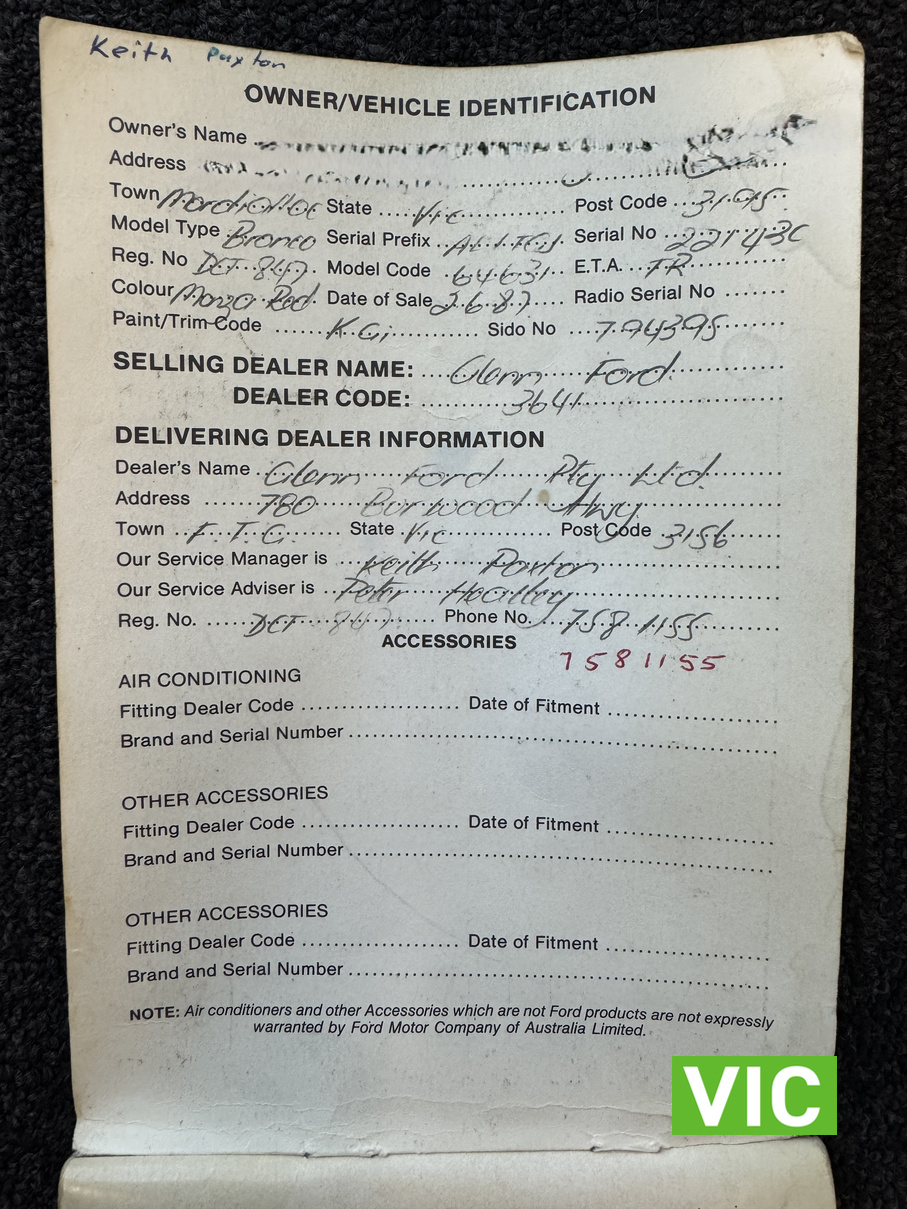 Keith Paxton
OWNER/VEHICLE IDENTIFICATION
Owner's Name
Address
Town Mordialloc State Vic Post Code 3195
Model Type Bronco Serial Prefix Serial No 22743C
Reg. No DCT 847 Model Code 64631 E.T.A. FR
Colour Monza Red Date of Sale 2.6.87 Radio Serial No
Paint/Trim Code K.G. Sido No 794395
SELLING DEALER NAME: Glenn Ford
DEALER CODE: 3641
DELIVERING DEALER INFORMATION
Dealer's Name Glenn Ford Pty Ltd
Address 780 Burwood Hwy
Town F.T.G. State Vic Post Code 3156
Our Service Manager is Keith Paxton
Our Service Adviser is Peter Healley
Reg. No. DCT 847 Phone No. 758 1155
ACCESSORIES
7581155
AIR CONDITIONING
Fitting Dealer Code Date of Fitment
Brand and Serial Number
OTHER ACCESSORIES
Fitting Dealer Code Date of Fitment
Brand and Serial Number
OTHER ACCESSORIES
Fitting Dealer Code Date of Fitment
Brand and Serial Number
NOTE: Air conditioners and other Accessories which are not Ford products are not expressly
warranted by Ford Motor Company of Australia Limited.
VIC